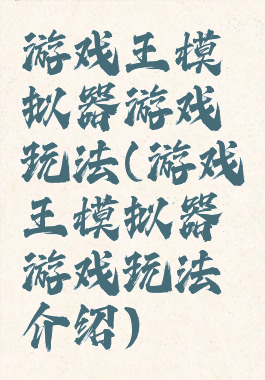 游戏王模
拟器游戏
玩法(游戏
王模拟器
游戏玩法
介绍)